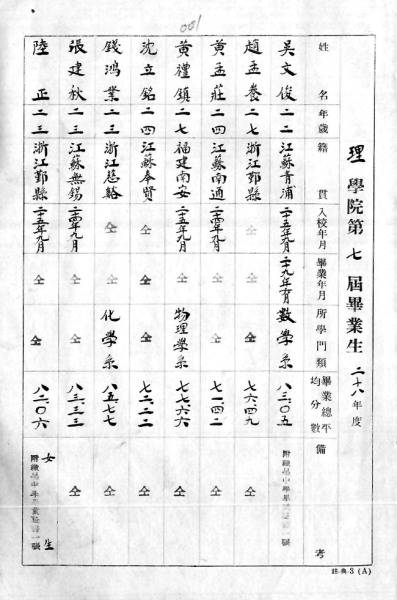 001
理學院第七屆畢業生 二十八年度
姓名 年歲 籍貫 入校年月 畢業年月 所學門類 畢業總平均分數 備考
吳文俊 二二 江蘇青浦 二十五年九月 二十九年 數學系 八三.〇五
趙孟養 二七 浙江鄞縣 仝 仝 仝 七六.四九 仝
黃孟莊 二四 江蘇南通 二十四年九月 仝 仝 七一.四二 仝
黃禮鎮 二七 福建南安 二十五年九月 仝 物理學系 七七.六六 仝
沈立銘 二四 江蘇奉賢 仝 仝 仝 七二.二二 仝
錢鴻業 二三 浙江慈谿 仝 仝 化學系 八五.七七 仝
張建秋 二三 江蘇無錫 二十四年九月 仝 仝 八三.三三 仝
陸正 二三 浙江鄞縣 二十五年九月 仝 仝 八二.〇六 女生
註冊 3 (A)